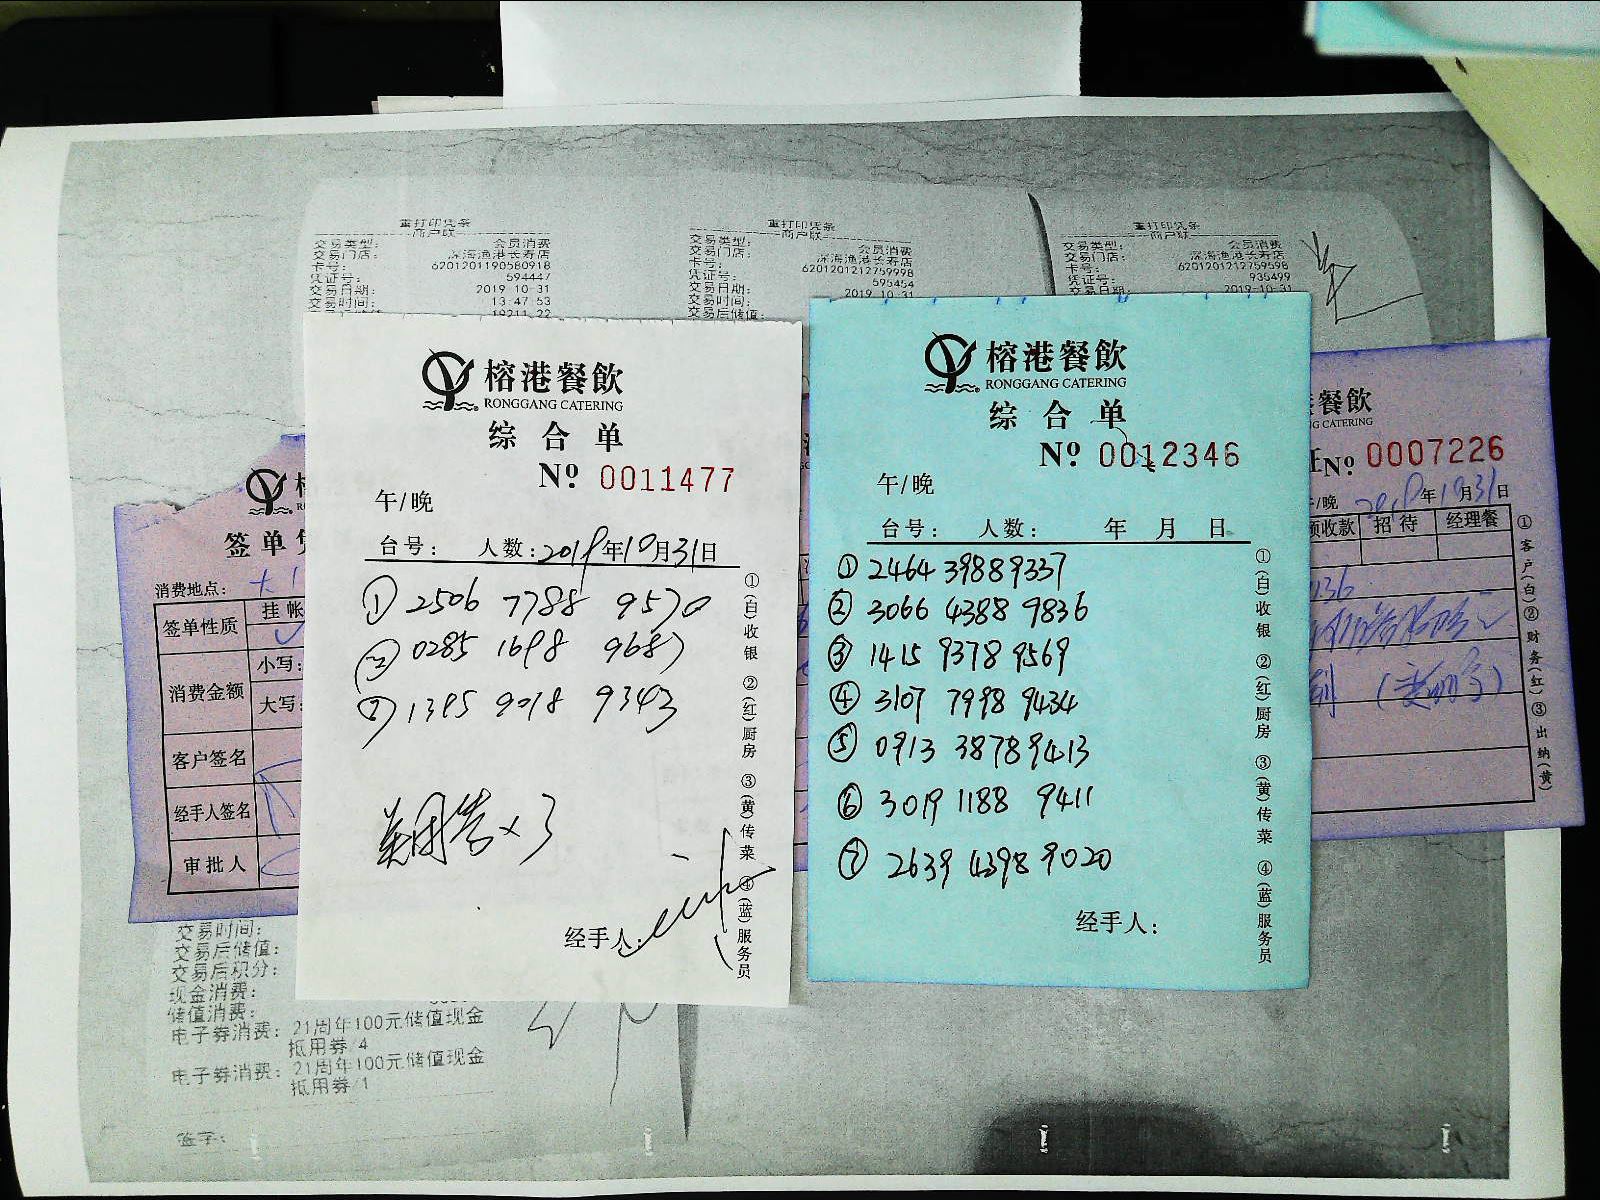 重打印凭条
商户联
交易类型： 会员消费
交易门店： 深海渔港长寿店
卡号： 6201201190580918
凭证号： 594447
交易日期： 2019-10-31
交易时间： 13:47:53
19211.22
重打印凭条
商户联
交易类型： 会员消费
交易门店： 深海渔港长寿店
卡号： 6201201212759998
凭证号： 595454
交易日期： 2019-10-31
交易时间：
交易后储值：
重打印凭条
商户联
交易类型： 会员消费
交易门店： 深海渔港长寿店
卡号： 6201201212759598
凭证号： 935499
交易日期： 2019-10-31
榕港餐飲
RONGGANG CATERING
综合单
Nº 0011477
午/晚
台号： 人数：2019年10月31日
① 2506 7788 9570
② 0285 1698 9687
③ 1395 9018 9343
×3
经手人：
①(白)收银 ②(红)厨房 ③(黄)传菜 ④(蓝)服务员
榕港餐飲
RONGGANG CATERING
综合单
Nº 0012346
午/晚
台号： 人数： 年 月 日
① 2464 3988 9337
② 3066 4388 9836
③ 1415 9378 9569
④ 3107 7998 9434
⑤ 0913 3878 9413
⑥ 3019 1188 9411
⑦ 2639 4398 9020
经手人：
①(白)收银 ②(红)厨房 ③(黄)传菜 ④(蓝)服务员
签单
消费地点：
签单性质 挂帐
消费金额 小写：
大写：
客户签名
经手人签名
审批人
餐飲
CATERING
Nº 0007226
/晚 年10月31日
预收款 招待 经理餐
①客户(白)②财务(红)③出纳(黄)
交易时间：
交易后储值：
交易后积分：
现金消费：
储值消费：
电子券消费： 21周年100元储值现金
抵用券/4
电子券消费： 21周年100元储值现金
抵用券/1
签字：